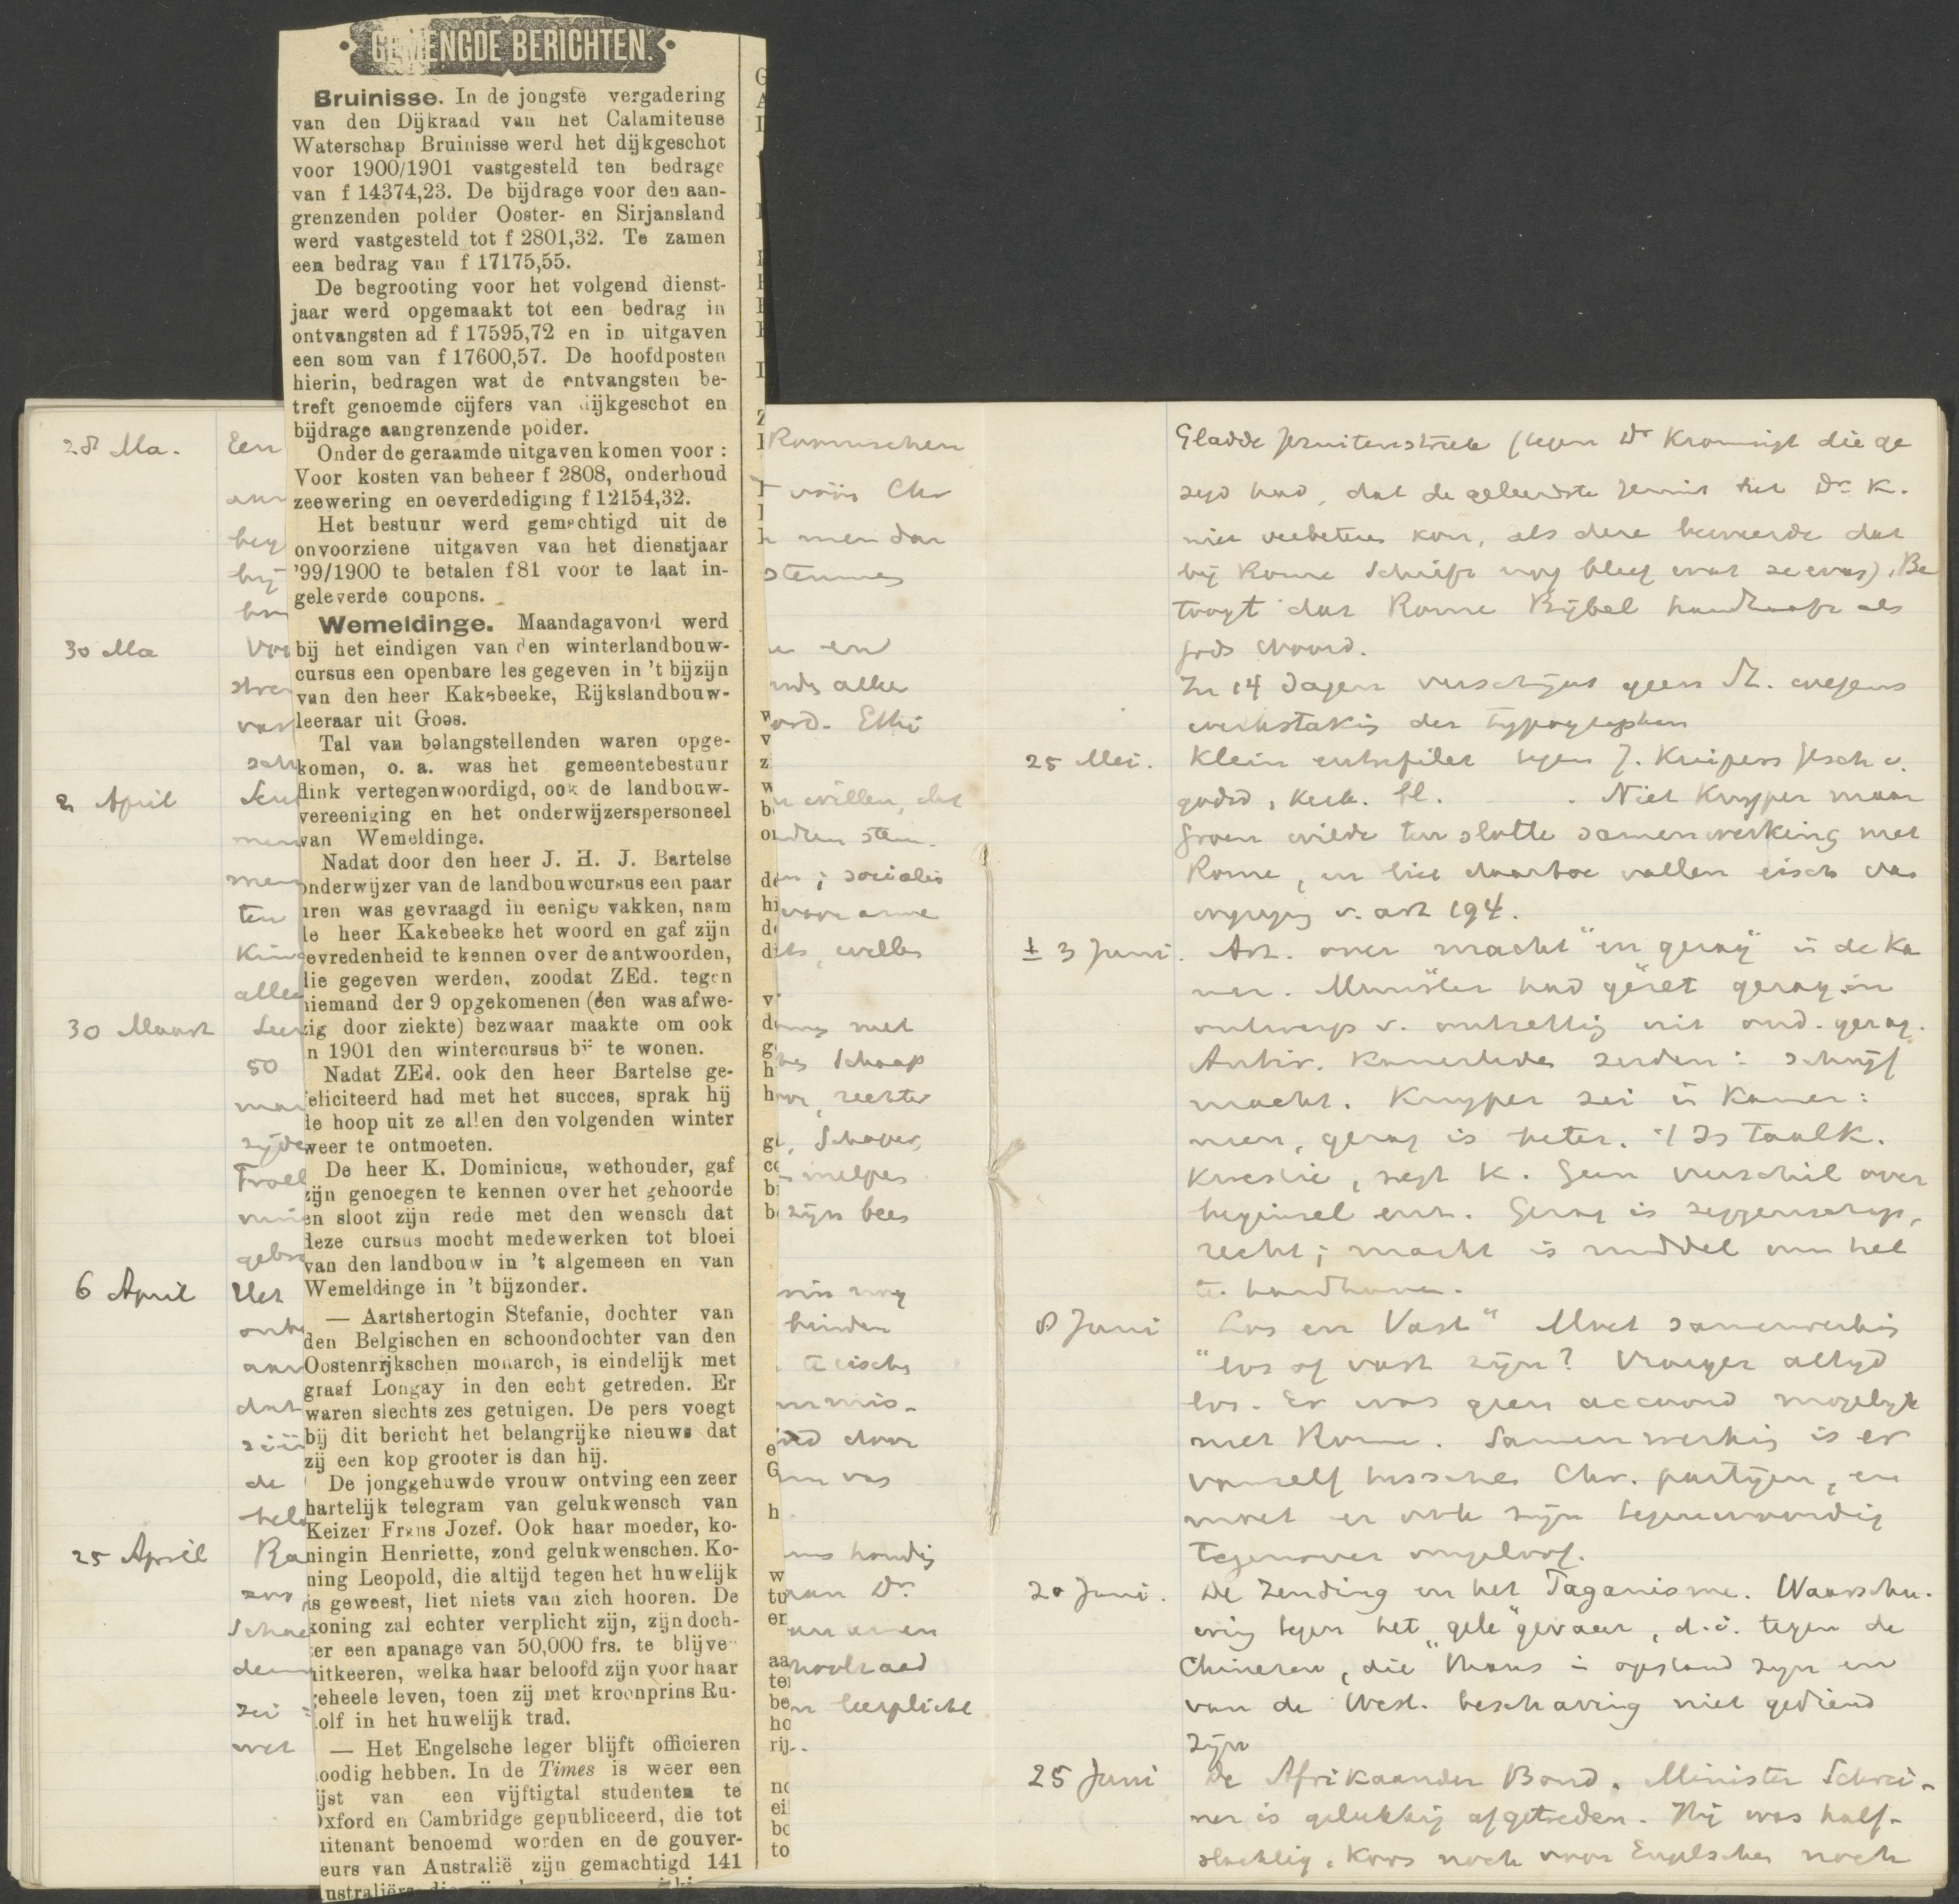 GEMENGDE BERICHTEN.
Bruinisse. In de jongste vergadering
van den Dijkraad van het Calamiteuse
Waterschap Bruinisse werd het dijkgeschot
voor 1900/1901 vastgesteld ten bedrage
van f 14374,23. De bijdrage voor den aan-
grenzenden polder Ooster- en Sirjansland
werd vastgesteld tot f 2801,32. Te zamen
een bedrag van f 17175,55.
De begrooting voor het volgend dienst-
jaar werd opgemaakt tot een bedrag in
ontvangsten ad f 17595,72 en in uitgaven
een som van f 17600,57. De hoofdposten
hierin, bedragen wat de ontvangsten be-
treft genoemde cijfers van dijkgeschot en
bijdrage aangrenzende polder.
Onder de geraamde uitgaven komen voor:
Voor kosten van beheer f 2808, onderhoud
zeewering en oeverdediging f 12154,32.
Het bestuur werd gemachtigd uit de
onvoorziene uitgaven van het dienstjaar
'99/1900 te betalen f81 voor te laat in-
geleverde coupons.
Wemeldinge. Maandagavond werd
bij het eindigen van den winterlandbouw-
cursus een openbare les gegeven in 't bijzijn
van den heer Kakebeeke, Rijkslandbouw-
leeraar uit Goes.
Tal van belangstellenden waren opge-
komen, o. a. was het gemeentebestuur
flink vertegenwoordigd, ook de landbouw-
vereeniging en het onderwijzerspersoneel
van Wemeldinge.
Nadat door den heer J. H. J. Bartelse
onderwijzer van de landbouwcursus een paar
uren was gevraagd in eenige vakken, nam
de heer Kakebeeke het woord en gaf zijn
tevredenheid te kennen over de antwoorden,
die gegeven werden, zoodat ZEd. tegen
niemand der 9 opgekomenen (één was afwe-
zig door ziekte) bezwaar maakte om ook
in 1901 den wintercursus bij te wonen.
Nadat ZEd. ook den heer Bartelse ge-
feliciteerd had met het succes, sprak hij
de hoop uit ze allen den volgenden winter
weer te ontmoeten.
De heer K. Dominicus, wethouder, gaf
zijn genoegen te kennen over het gehoorde
en sloot zijn rede met den wensch dat
deze cursus mocht medewerken tot bloei
van den landbouw in 't algemeen en van
Wemeldinge in 't bijzonder.
— Aartshertogin Stefanie, dochter van
den Belgischen en schoondochter van den
Oostenrijkschen monarch, is eindelijk met
graaf Longay in den echt getreden. Er
waren slechts zes getuigen. De pers voegt
bij dit bericht het belangrijke nieuws dat
zij een kop grooter is dan hij.
De jonggehuwde vrouw ontving een zeer
hartelijk telegram van gelukwensch van
Keizer Frans Jozef. Ook haar moeder, ko-
ningin Henriette, zond gelukwenschen. Ko-
ning Leopold, die altijd tegen het huwelijk
is geweest, liet niets van zich hooren. De
koning zal echter verplicht zijn, zijn doch-
ter een apanage van 50,000 frs. te blijve
uitkeeren, welka haar beloofd zijn voor haar
geheele leven, toen zij met kroonprins Ru-
dolf in het huwelijk trad.
— Het Engelsche leger blijft officieren
noodig hebben. In de Times is weer een
lijst van een vijftigtal studenten te
Oxford en Cambridge gepubliceerd, die tot
luitenant benoemd worden en de gouver-
neurs van Australië zijn gemachtigd 141
28 Ma. Een
30 Ma
2 April
30 Maart
50
6 April Het
25 April
Romischen
men dan
stemmen
en
alle
Ethi
willen, dat
sociales
arme
willen
met
Schaap
rechter
Schaper,
zijn bees
binden
door
van
aan Dr.
leerplicht
Gladde Jezuitenstreek (tegen Dr Kromsigt die ge
zegd had, dat de geleerdste Jezuit het Dr. K.
niet verbeteren kon, als deze beweerde dat
bij Rome Schrift nog bleef wat ze was). Be
toogt dat Rome Bijbel handhaaft als
Gods Woord.
In 14 dagen verschijnt geen St. wegens
werkstaking der typographen
25 Mei. Klein entrefilet tegen J. Kuipers Gesch v.
godsd. kerk. bl. . Niet Kuyper maar
Groen wilde ten slotte samenwerking met
Rome, en liet daartoe vallen eisch van
wijziging v. art 194.
± 3 Juni. Art. over "macht" en "gezag" in de Ka
mer. Minister had gezet gezag in
ontwerp v. ontzetting uit oud. gezag.
Antir. Kamerleden zeiden: schrijf
macht. Kuyper zei in Kamer:
neen, gezag is beter. 't Is taalk.
kwestie, zegt K. Geen verschil over
beginsel enz. Gezag is zeggenschap,
recht; macht is middel om het
te handhaven.
8 Juni "Los en Vast" Moet samenwerking
"los of vast zijn? Vroeger altijd
los. Er was geen accoord mogelijk
met Rome. Samenwerking is er
vanzelf tusschen Chr. partijen, en
moet er ook zijn tegenwoordig
tegenover ongeloof.
20 Juni. De Zending en het Paganisme. Waarschu-
wing tegen het "gele" gevaar, d.i. tegen de
Chineezen, die thans in opstand zijn en
van de West. beschaving niet gediend
zijn
25 Juni De Afrikaander Bond. Minister Schrei-
ner is gelukkig afgetreden. Hij was half-
slachtig. Koos noch voor Engelschen noch